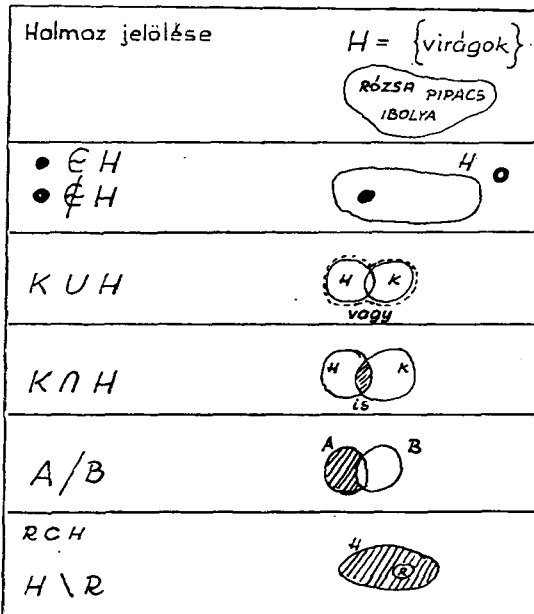 Halmaz jelölése
H = {virágok}
RÓZSA PIPACS
IBOLYA
• ∈ H
• ∉ H
H
K ∪ H
H K
vagy
K ∩ H
H K
is
A/B
A B
R ⊂ H
H \ R
H
R